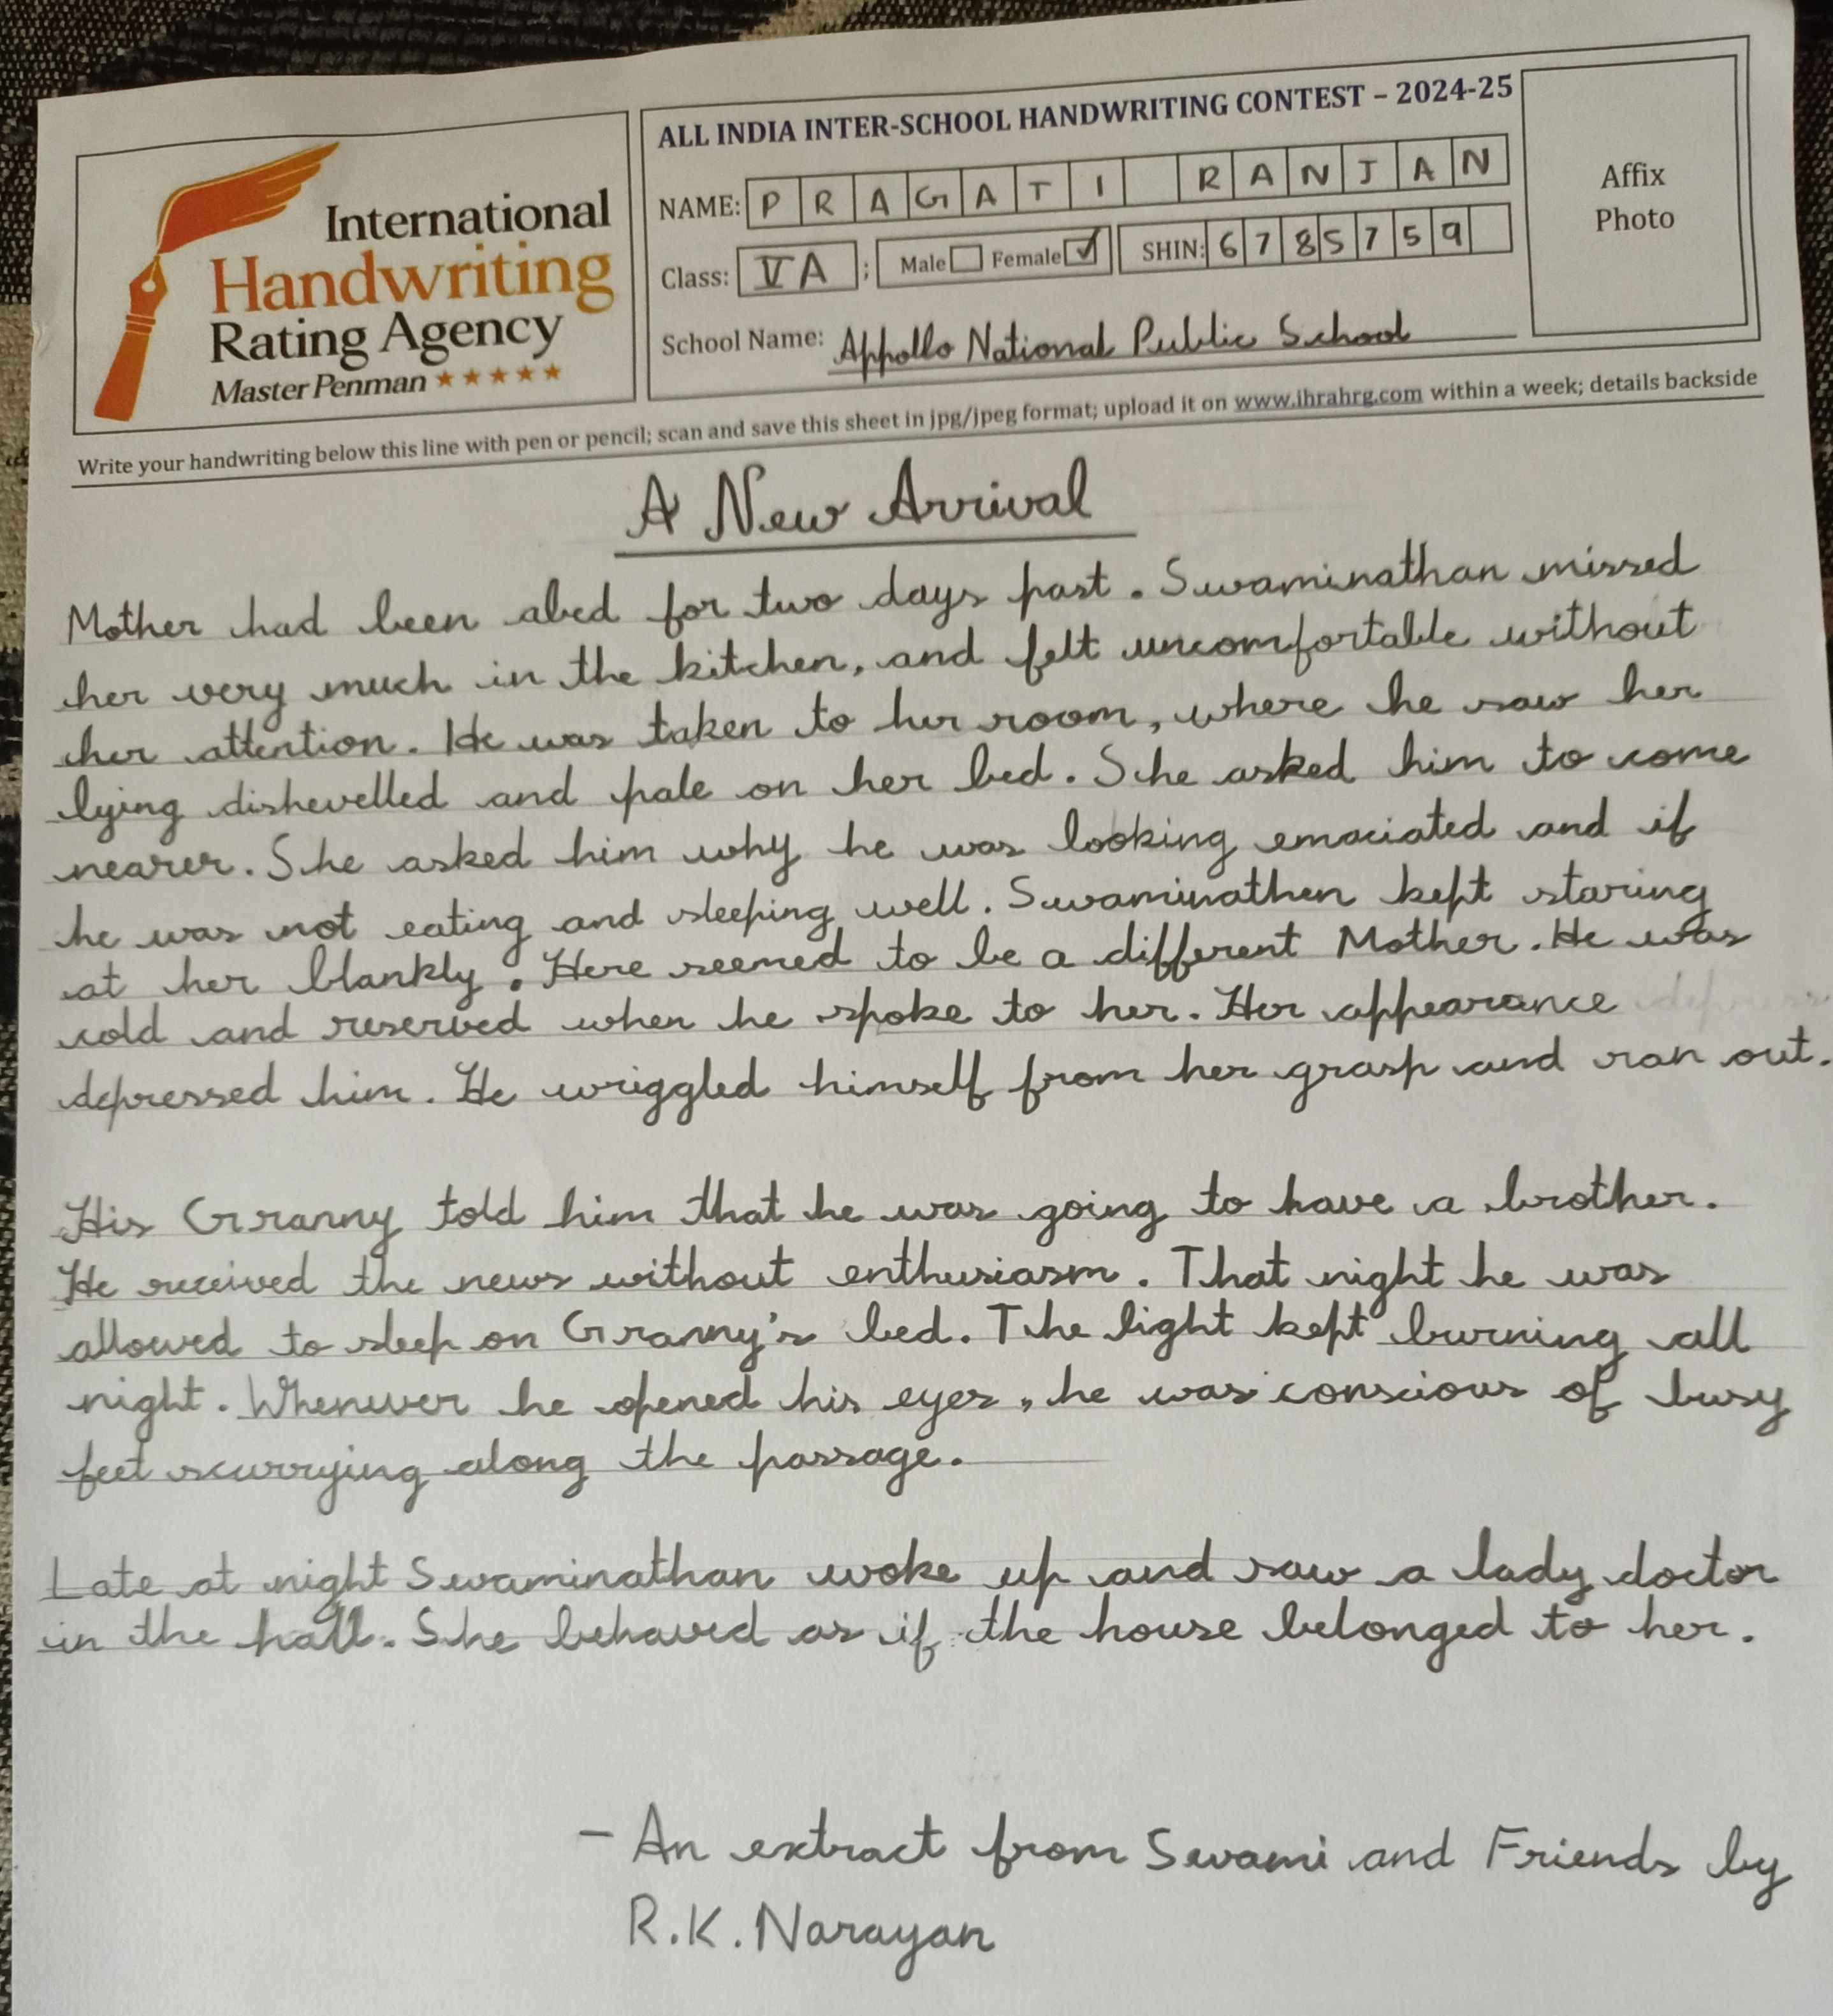 International
Handwriting
Rating Agency
Master Penman ★★★★★
ALL INDIA INTER-SCHOOL HANDWRITING CONTEST – 2024-25
NAME: PRAGATI RANJAN
Class: V A ; Male Female ✓ SHIN: 6785759
School Name: Appollo National Public School
Affix
Photo
Write your handwriting below this line with pen or pencil; scan and save this sheet in jpg/jpeg format; upload it on www.ihrahrg.com within a week; details backside
A New Arrival
Mother had been abed for two days past. Swaminathan missed
her very much in the kitchen, and felt uncomfortable without
her attention. He was taken to her room, where he saw her
lying dishevelled and pale on her bed. She asked him to come
nearer. She asked him why he was looking emaciated and if
he was not eating and sleeping well. Swaminathen kept staring
at her blankly. Here seemed to be a different Mother. He was
cold and reserved when he spoke to her. Her appearance depress
depressed him. He wriggled himself from her grasp and ran out.
His Granny told him that he was going to have a brother.
He received the news without enthusiasm. That night he was
allowed to sleep on Granny's bed. The light kept burning all
night. Whenever he opened his eyes, he was conscious of busy
feet scurrying along the passage.
Late at night Swaminathan woke up and saw a lady doctor
in the hall. She behaved as if the house belonged to her.
– An extract from Swami and Friends by
R.K. Narayan